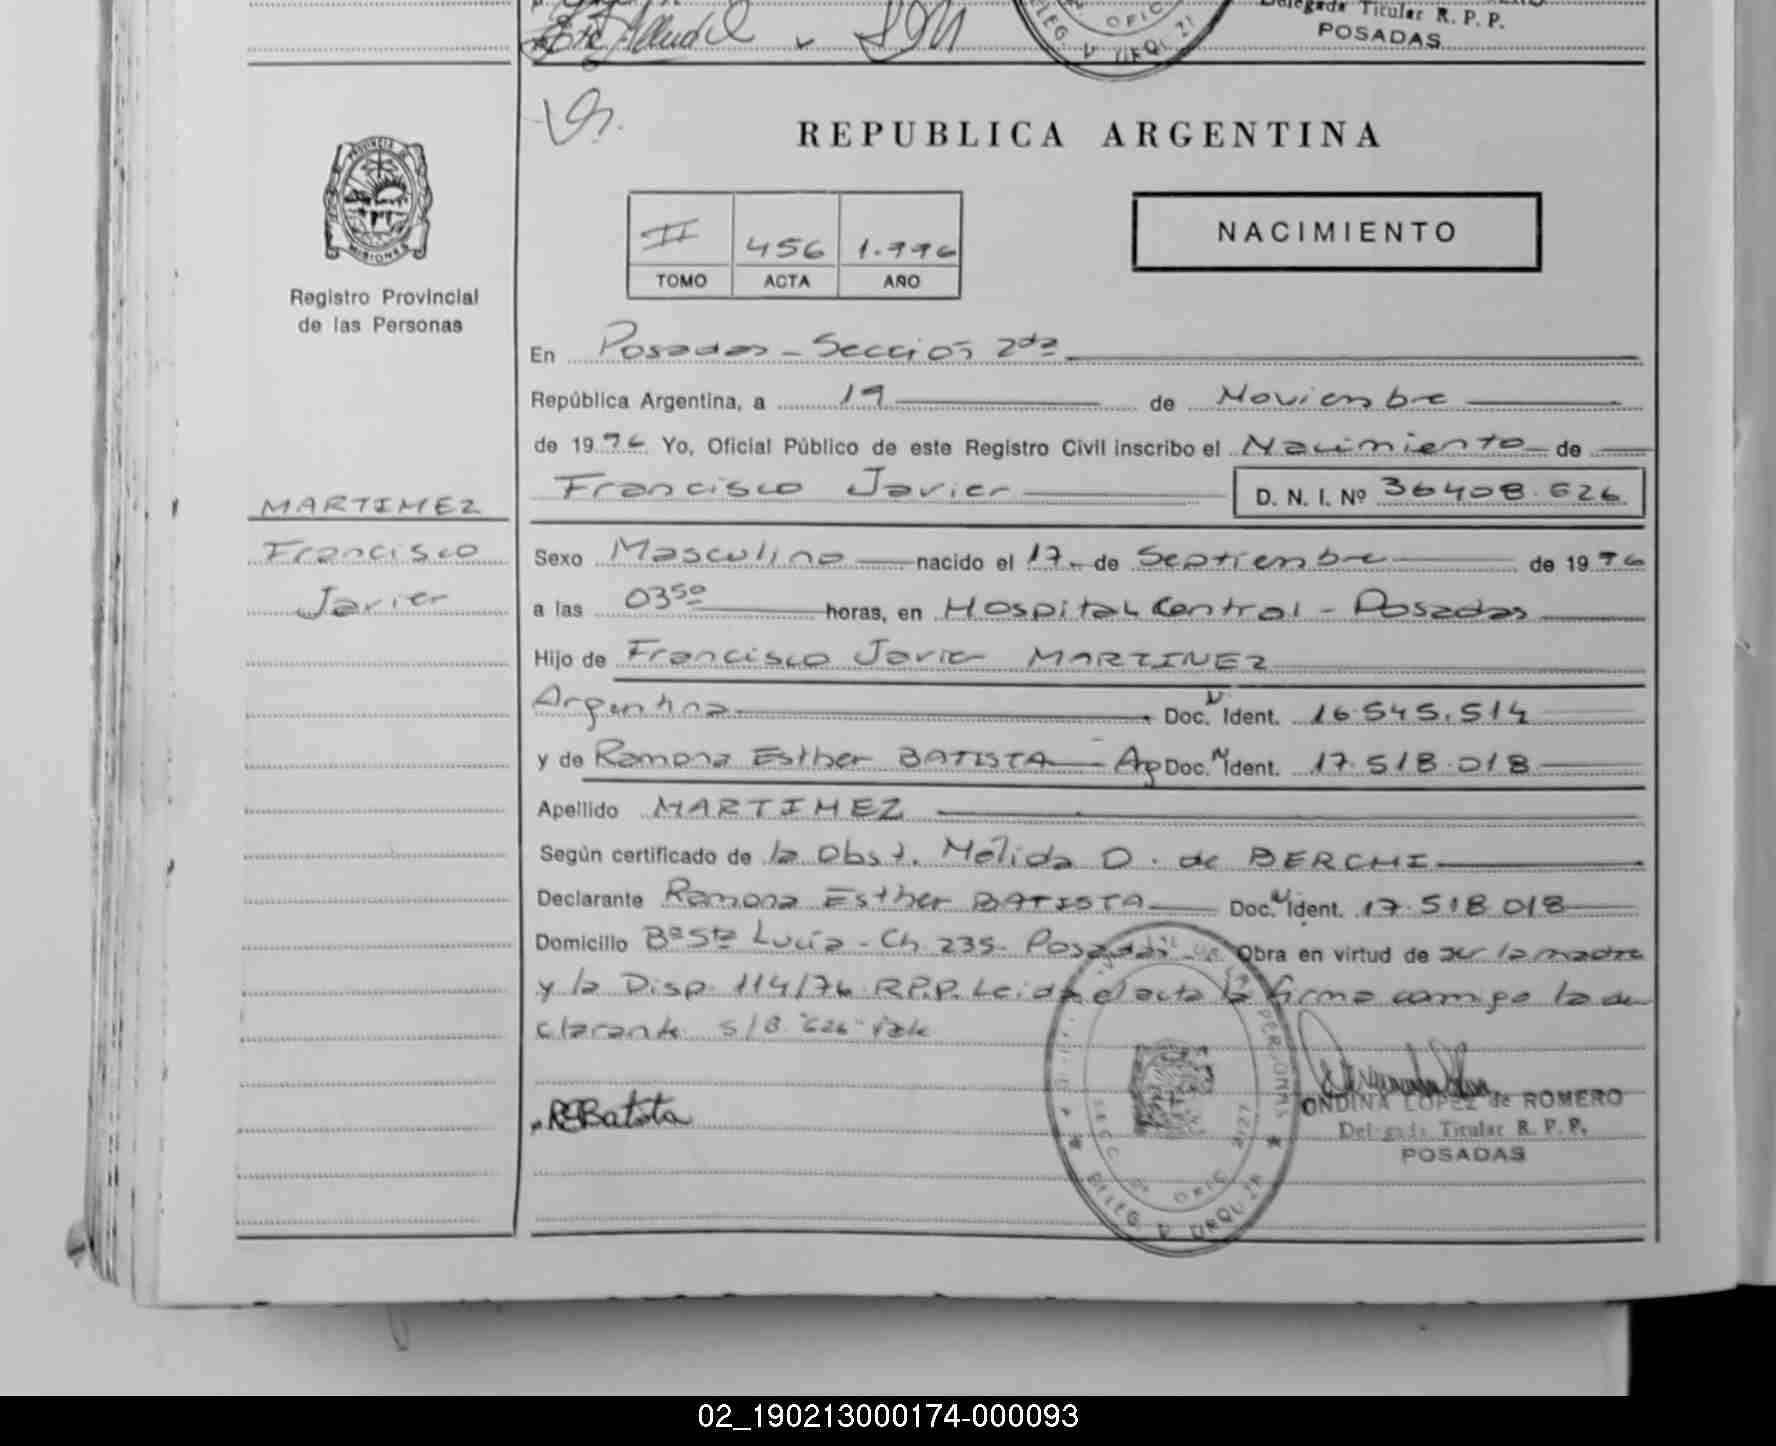 Delegada Titular R. P. P.
POSADAS
DELEG V URQUIZA
OFIC
REPUBLICA ARGENTINA
PROVINCIA DE
MISIONES
Registro Provincial
de las Personas
II 456 1.996
TOMO ACTA AÑO
NACIMIENTO
En Posadas - Sección 2da
República Argentina, a 19 de Noviembre
de 1996 Yo, Oficial Público de este Registro Civil inscribo el Nacimiento de
Francisco Javier D. N. I. Nº 36408.626
MARTINEZ
Francisco
Javier
Sexo Masculino nacido el 17 de Septiembre de 1996
a las 0350 horas, en Hospital Central - Posadas
Hijo de Francisco Javier MARTINEZ
Argentina Doc. N Ident. 16.545.514
y de Ramona Esther BATISTA - Ag Doc. N Ident. 17.518.018
Apellido MARTINEZ
Según certificado de la Obst. Nélida D. de BERCHI
Declarante Ramona Esther BATISTA Doc. N Ident. 17.518.018
Domicilio Bº Sta Lucía - Ch. 235 - Posadas - Obra en virtud de ser la madre
y la Disp. 114/96 R.P.P. Leida el acta la firma conmigo la de
clarante S/B "626" Vale
REBatista
ONDINA LOPEZ de ROMERO
Delegada Titular R. P. P.
POSADAS
DELEG V URQUIZA
02_190213000174-000093